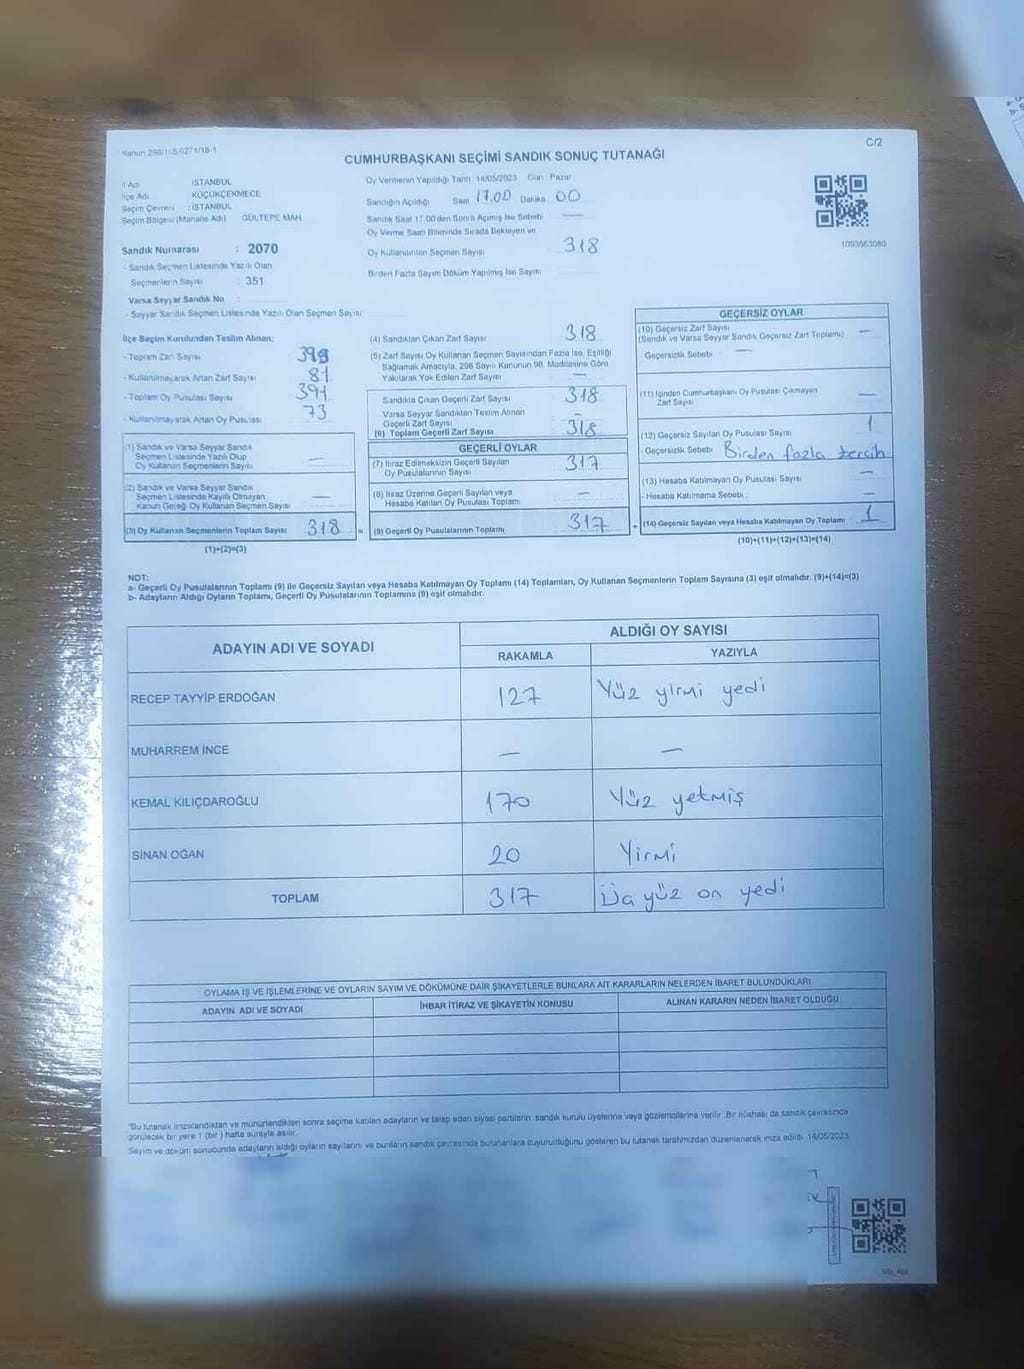 Kanun:298/105,6271/18-1
C/2
CUMHURBAŞKANI SEÇİMİ SANDIK SONUÇ TUTANAĞI
İl Adı : İSTANBUL
İlçe Adı : KÜÇÜKÇEKMECE
Seçim Çevresi : İSTANBUL
Seçim Bölgesi (Mahalle Adı) GÜLTEPE MAH
Sandık Numarası : 2070
- Sandık Seçmen Listesinde Yazılı Olan
Seçmenlerin Sayısı : 351
Varsa Seyyar Sandık No :
- Seyyar Sandık Seçmen Listesinde Yazılı Olan Seçmen Sayısı:
Oy Vermenin Yapıldığı Tarih 14/05/2023 Gün : Pazar
Sandığın Açıldığı Saat 17.00 Dakika 00
Sandık Saat 17:00'den Sonra Açılmış İse Sebebi —
Oy Verme Saati Bitiminde Sırada Bekleyen ve
Oy Kullandırılan Seçmen Sayısı 318
Birden Fazla Sayım Döküm Yapılmış İse Sayısı
1093663080
İlçe Seçim Kurulundan Teslim Alınan:
- Toplam Zarf Sayısı 398
- Kullanılmayarak Artan Zarf Sayısı 81
- Toplam Oy Pusulası Sayısı 391
- Kullanılmayarak Artan Oy Pusulası 73
(1) Sandık ve Varsa Seyyar Sandık
Seçmen Listesinde Yazılı Olup
Oy Kullanan Seçmenlerin Sayısı —
(2) Sandık ve Varsa Seyyar Sandık
Seçmen Listesinde Kayıtlı Olmayan
Kanun Gereği Oy Kullanan Seçmen Sayısı —
(3) Oy Kullanan Seçmenlerin Toplam Sayısı 318
(1)+(2)=(3)
(4) Sandıktan Çıkan Zarf Sayısı 318
(5) Zarf Sayısı Oy Kullanan Seçmen Sayısından Fazla İse, Eşitliği
Sağlamak Amacıyla; 298 Sayılı Kanunun 98. Maddesine Göre
Yakılarak Yok Edilen Zarf Sayısı —
Sandıkta Çıkan Geçerli Zarf Sayısı 318
Varsa Seyyar Sandıktan Teslim Alınan
Geçerli Zarf Sayısı —
(6) Toplam Geçerli Zarf Sayısı 318
GEÇERLİ OYLAR
(7) İtiraz Edilmeksizin Geçerli Sayılan
Oy Pusulalarının Sayısı 317
(8) İtiraz Üzerine Geçerli Sayılan veya
Hesaba Katılan Oy Pusulası Toplamı —
(9) Geçerli Oy Pusulalarının Toplamı 317
GEÇERSİZ OYLAR
(10) Geçersiz Zarf Sayısı
(Sandık ve Varsa Seyyar Sandık Geçersiz Zarf Toplamı) —
- Geçersizlik Sebebi —
(11) İçinden Cumhurbaşkanı Oy Pusulası Çıkmayan
Zarf Sayısı —
(12) Geçersiz Sayılan Oy Pusulası Sayısı 1
- Geçersizlik Sebebi Birden fazla tercih
(13) Hesaba Katılmayan Oy Pusulası Sayısı —
- Hesaba Katılmama Sebebi : —
(14) Geçersiz Sayılan veya Hesaba Katılmayan Oy Toplamı 1
(10)+(11)+(12)+(13)=(14)
NOT:
a- Geçerli Oy Pusulalarının Toplamı (9) ile Geçersiz Sayılan veya Hesaba Katılmayan Oy Toplamı (14) Toplamları, Oy Kullanan Seçmenlerin Toplam Sayısına (3) eşit olmalıdır. (9)+(14)=(3)
b- Adayların Aldığı Oyların Toplamı, Geçerli Oy Pusulalarının Toplamına (9) eşit olmalıdır.
ADAYIN ADI VE SOYADI
ALDIĞI OY SAYISI
RAKAMLA YAZIYLA
RECEP TAYYİP ERDOĞAN 127 Yüz yirmi yedi
MUHARREM İNCE — —
KEMAL KILIÇDAROĞLU 170 Yüz yetmiş
SİNAN OĞAN 20 Yirmi
TOPLAM 317 Üç yüz on yedi
OYLAMA İŞ VE İŞLEMLERİNE VE OYLARIN SAYIM VE DÖKÜMÜNE DAİR ŞİKAYETLERLE BUNLARA AİT KARARLARIN NELERDEN İBARET BULUNDUKLARI
ADAYIN ADI VE SOYADI İHBAR İTİRAZ VE ŞİKAYETİN KONUSU ALINAN KARARIN NEDEN İBARET OLDUĞU
*Bu tutanak imzalandıktan ve mühürlendikten sonra seçime katılan adayların ve talep eden siyasi partilerin sandık kurulu üyelerine veya gözlemcilerine verilir. Bir nüshası da sandık çevresinde
görülecek bir yere 1 (bir) hafta süreyle asılır.
Sayım ve döküm sonucunda adayların aldığı oyların sayılarını ve bunların sandık çevresinde bulunanlara duyurulduğunu gösteren bu tutanak tarafımızdan düzenlenerek imza edildi. 14/05/2023